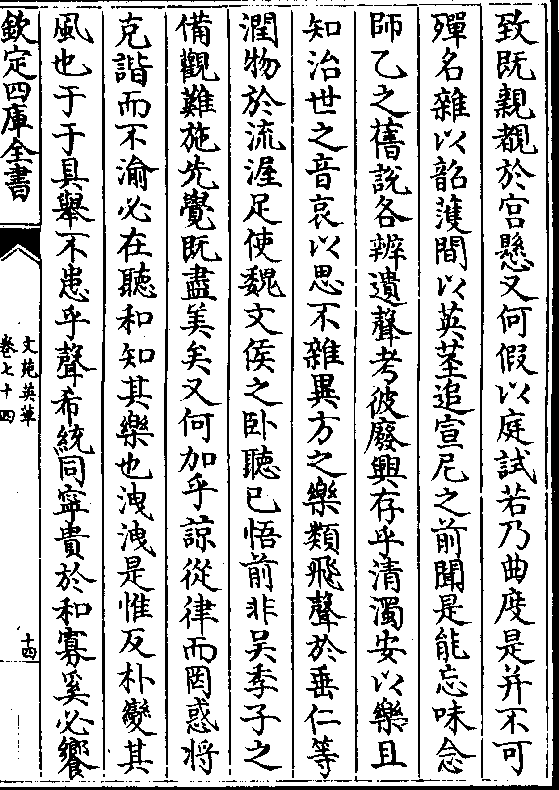 致既親覩於宫懸又何假以庭試若乃曲度是并不可
殫名雜以韶濩間以英莖追宣尼之前聞是能忘味念
師乙之舊說各辨遺聲考彼廢興存乎清濁安以樂且
知治世之音哀以思不雜異方之樂類飛聲於垂仁等
潤物於流渥足使魏文侯之卧聽已悟前非吴季子之
備觀難施先覺既盡美矣又何加乎諒從律而罔惑將
克諧而不渝必在聽和知其樂也洩洩是惟反朴變其
風也于于具舉不患乎聲希統同寧貴於和寡奚必饗
欽定四庫全書
文苑英華
卷七十四
十四